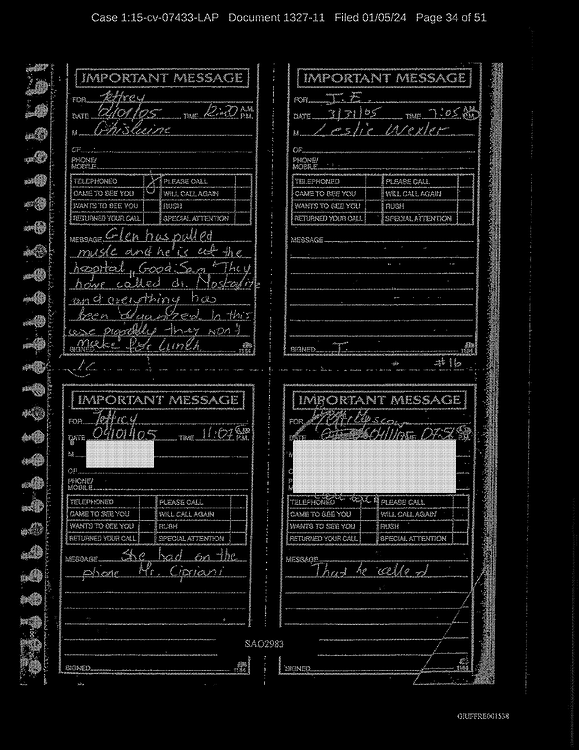 Case 1:15-cv-07433-LAP Document 1327-11 Filed 01/05/24 Page 34 of 51
IMPORTANT MESSAGE
FOR Jeffrey
DATE 04/01/05 TIME 12:20 A.M. P.M.
M Ghislaine
OF
PHONE/
MOBILE
TELEPHONED PLEASE CALL
CAME TO SEE YOU WILL CALL AGAIN
WANTS TO SEE YOU RUSH
RETURNED YOUR CALL SPECIAL ATTENTION
MESSAGE Glen has pulled
muscle and he is at the
hospital "Good. Sam" They
have called dr.
and everything has
been organized In this
case they won't
make for lunch
SIGNED
IMPORTANT MESSAGE
FOR J.E.
DATE 3/31/05 TIME 7:05 A.M. P.M.
M Leslie Wexler
OF
PHONE/
MOBILE
TELEPHONED PLEASE CALL
CAME TO SEE YOU WILL CALL AGAIN
WANTS TO SEE YOU RUSH
RETURNED YOUR CALL SPECIAL ATTENTION
MESSAGE
SIGNED J.
#16
IMPORTANT MESSAGE
FOR Jeffrey
DATE 04/01/05 TIME 11:07 A.M. P.M.
M
OF
PHONE/
MOBILE
TELEPHONED PLEASE CALL
CAME TO SEE YOU WILL CALL AGAIN
WANTS TO SEE YOU RUSH
RETURNED YOUR CALL SPECIAL ATTENTION
MESSAGE She had on the
phone Mr. Cipriani
SIGNED
IMPORTANT MESSAGE
FOR
DATE 04/1/05
TELEPHONED PLEASE CALL
CAME TO SEE YOU WILL CALL AGAIN
WANTS TO SEE YOU RUSH
RETURNED YOUR CALL SPECIAL ATTENTION
MESSAGE
That he called
SIGNED
SAO2983
GIUFFRE001538